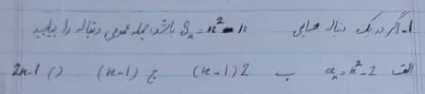 1- اگر در یک دنباله حسابی Sₙ = n² - n باشد، جمله عمومی دنباله را بیابید
الف aₙ = n² - 2 ب 2(n-1) ج (n-1) د) 2n-1